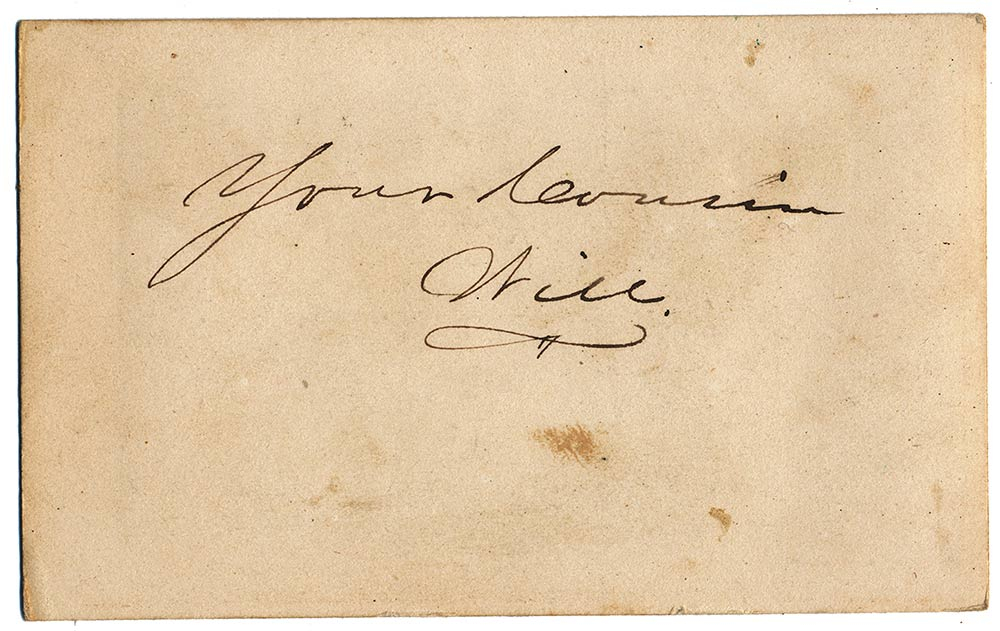 Your Cousin
Will.